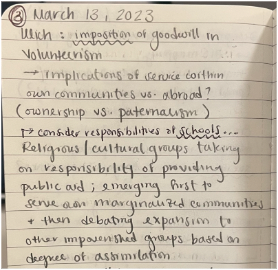 ③ March 13, 2023
Illich : imposition of goodwill in
volunteerism
→ implications of service within
own communities vs. abroad?
(ownership vs. paternalism)
↳ consider responsibilities of schools...
Religious / cultural groups taking
on responsibility of providing
public aid ; emerging first to
serve own marginalized communities
+ then debating expansion to
other impoverished groups based on
degree of assimilation